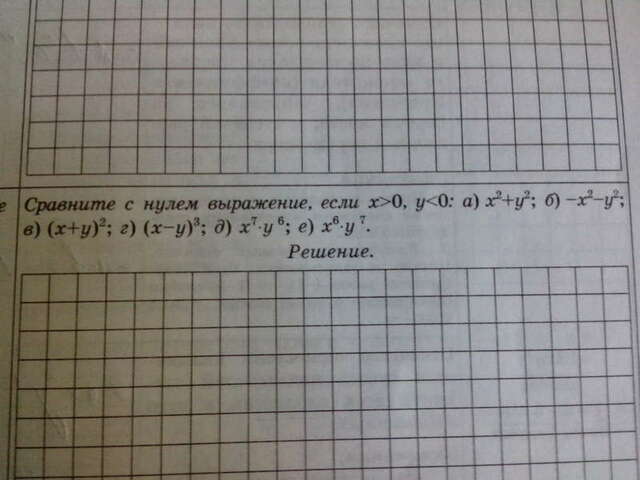 е Сравните с нулем выражение, если x>0, y<0: а) x²+y²; б) −x²−y²;
в) (x+y)²; г) (x−y)³; д) x⁷·y⁶; е) x⁶·y⁷.
Решение.